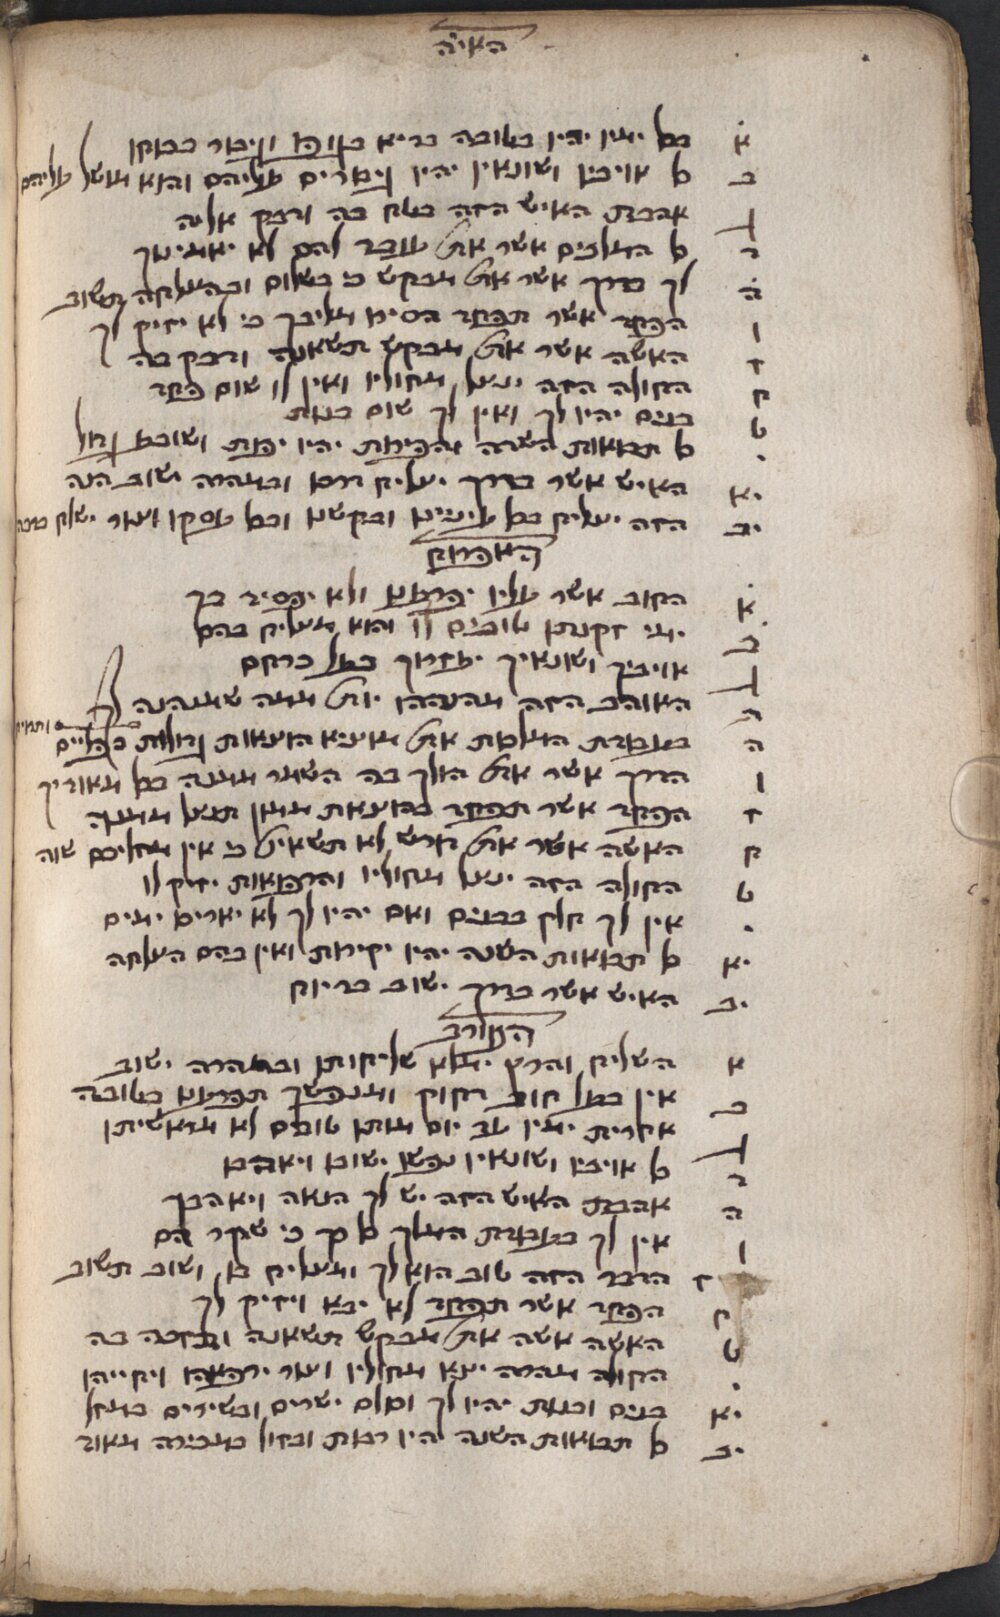 האיה
א כל ימיו יהיו בטובה בריא בגופו וגיבור כבוקר
ב כל אויביו ושונאיו יהיו נמסרים עליהם והוא מושל עליהם
ג אהבת האיש הזה בטח בה ודבק אליה
ד כל המלכים אשר את עובד להם לא יאמינוך
ה לך בדרך אשר את מבקש כי בשלום ובהצלחה תשוב
ו הפחד אשר תפחד הסירו מליבך כי לא יזיק לך
ז האשה אשר את מבקש תשאנה ודבק בה
ח החולה הזה ינצל מחוליו ואין לו שום פחד
ט בנים יהיו לך ואין לך שום בנות
י כל תבואות השדה והפירות יהיו יפות ושובע גדול
יא האיש אשר בדרך יצליח דרכו ובמהרה ישוב הנה
יב הזה יצליח בכל ענייניו ובקשתו ובכל עסקו ועוד ישלח ברכה
האפרוח
א החוב אשר עליו יפרענו ולא יפסיד בך
ב ימי זקנותו טובים לו והוא מצליח בהם
ג אויביך ושונאיך יעזרוך בעל כרחם
ד האוהב הזה מהעהו יותר ממה שנהנה לך
ה בעבודת המלכות את מוציא הוצאות גדולות כפליים ותמיד
ו הדרך אשר את הולך בה השמר ממנה בכל מאודיך
ז הפחד אשר תפחד בהוצאות ממון תנצל ממנה
ח האשה אשר את דורש לא תשאנה כי אין מזליכם שוה
ט החולה הזה ינצל מחוליו והרפואות יזיק לו
י אין לך חלק בבנים ואם יהיו לך לא יאריכו ימים
יא כל תבואות השנה יהיו יקירות ואין בהם הצלחה
יב האיש אשר בדרך ישוב בריוח
העורב
א השליח והרץ ימלא שליחותו ובמהרה ישוב
ב אין בעל חוב דחוק ומנפשך תפרענו בטובה
ג אחרית ימיו טוב יום מותו טובים לא מראשיתו
ד כל אויביו ושונאיו נפשו ישובו ויאהבו
ה אהבת האיש הזה יש לך הנאה ויאהבך
ו אין לך בעבודת המלך כל כך כי שקר הם
ז הדבר הזה טוב הוא לך ומצליח בו ושוב תשוב
ח הפחד אשר תפחד לא יבא ויזיק לך
ט האשה אשה את מבקש תשאנה ותזכה בה
י החולה מהרה יצא מחוליו ועוד ירפאהו ויחייהו
יא בנים ובנות יהיו לך וכולם ישרים ובשירים במזל
יב כל תבואות השנה יהיו רבות ובזול במכירה מאוד